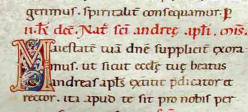 gerimus. spiritalit consequamur. p
ii. k. dec. Nat sci andreę apli. oms.
Maiestatē tuā dnē suppliciť exora
mus. ut sicut ecclę tuę beatus
andreas apls extitit pdicator et
rector. ita apud te sit pro nobis per